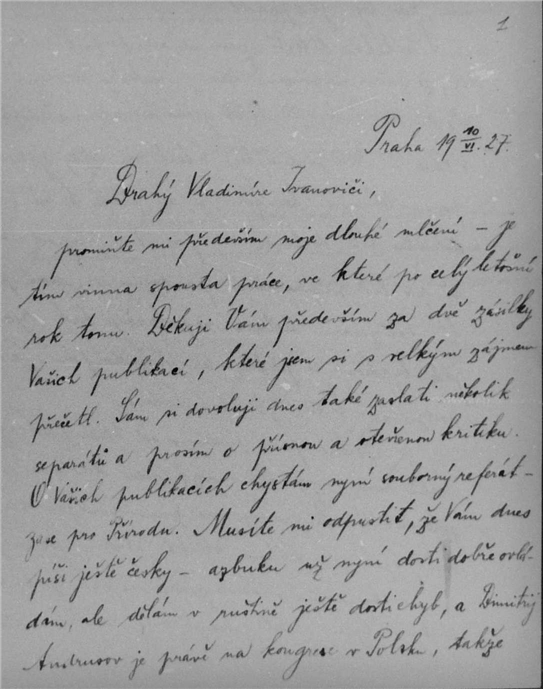 1
Praha 19 10/VI. 27.
Drahý Vladimíre Ivanoviči,
promiňte mi především moje dlouhé mlčení – je
tím vinna spousta práce, ve které po celý letošní
rok tonu. Děkuji Vám především za dvě zásilky
Vašich publikací, které jsem si s velkým zájmem
přečetl. Sám si dovoluji dnes také zaslati několik
separátů a prosím o přísnou a otevřenou kritiku.
O Vašich publikacích chystám nyní souborný referát –
zase pro Přírodu. Musíte mi odpustit, že Vám dnes
píši ještě česky – azbuku už nyní dosti dobře ovlá-
dám, ale dělám v ruštině ještě dosti chyb, a Dimitrij
Andrusov je právě na kongrese v Polsku, takže